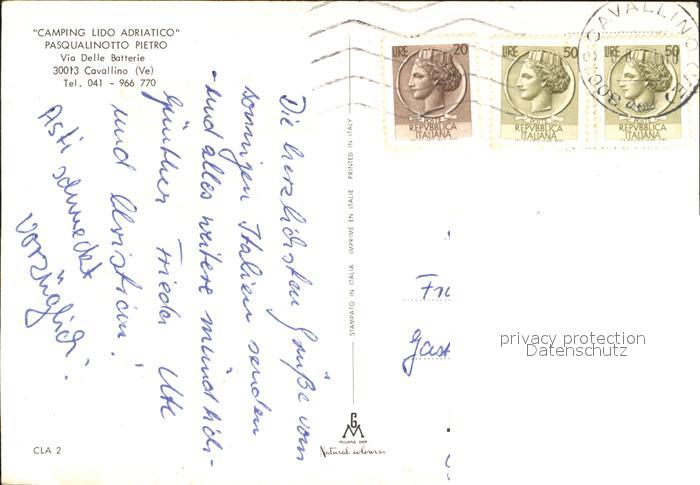 "CAMPING LIDO ADRIATICO"
PASQUALINOTTO PIETRO
Via Delle Batterie
30013 Cavallino (Ve)
Tel. 041 - 966 770
Die herzlichsten Grüße vom
sonnigen Italien senden
- und alles weitere mündlich -
Günther Frieda Ute
und Christian!
Asti schmeckt
vorzüglich!
CLA 2
STAMPATO IN ITALIA IMPRIMÉ EN ITALIE PRINTED IN ITALY
GM
MILANO DEP.
Natural colours
LIRE 20
POSTE
REPVBBLICA
ITALIANA
LIRE 50
POSTE
REPVBBLICA
ITALIANA
LIRE 50
REPVBBLICA
ITALIANA
CAVALLINO
Fr
Gast
privacy protection
Datenschutz